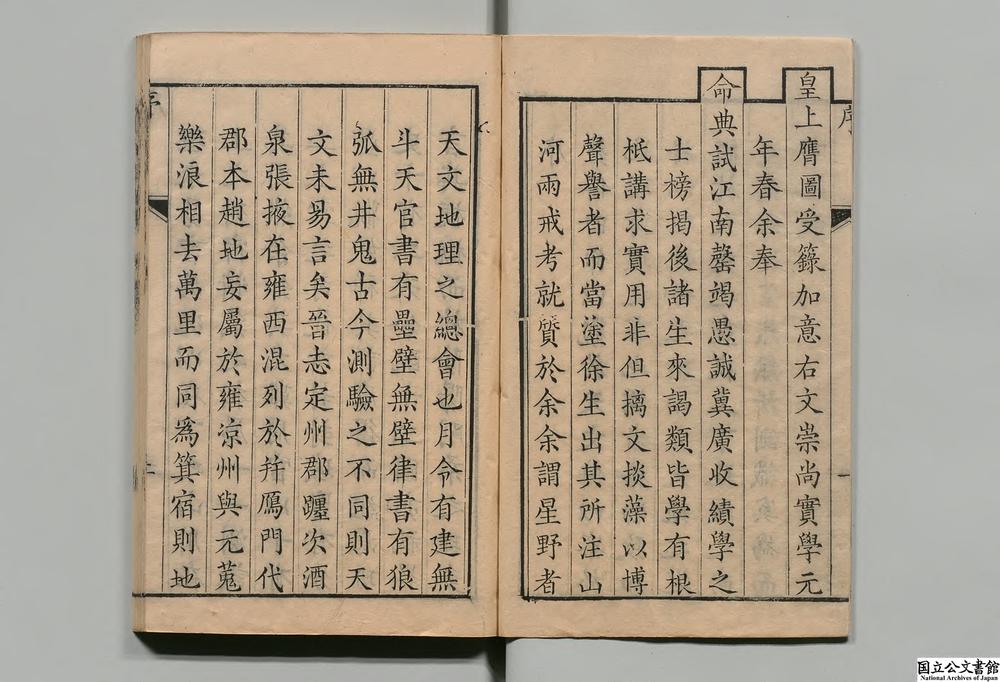 序
皇上膺圖受籙加意右文崇尚實學元
年春余奉
命典試江南罄竭愚誠冀廣收績學之
士榜揭後諸生來謁類皆學有根
柢講求實用非但摛文掞藻以博
聲譽者而當塗徐生出其所注山
河兩戒考就質於余余謂星野者
一
天文地理之總會也月令有建無
斗天官書有壘壁無壁律書有狼
弧無井鬼古今測驗之不同則天
文未易言矣晉志定州郡躔次酒
泉張掖在雍西混列於并鴈門代
郡本趙地妄屬於雍涼州與元菟
樂浪相去萬里而同為箕宿則地
序
国立公文書館
National Archives of Japan